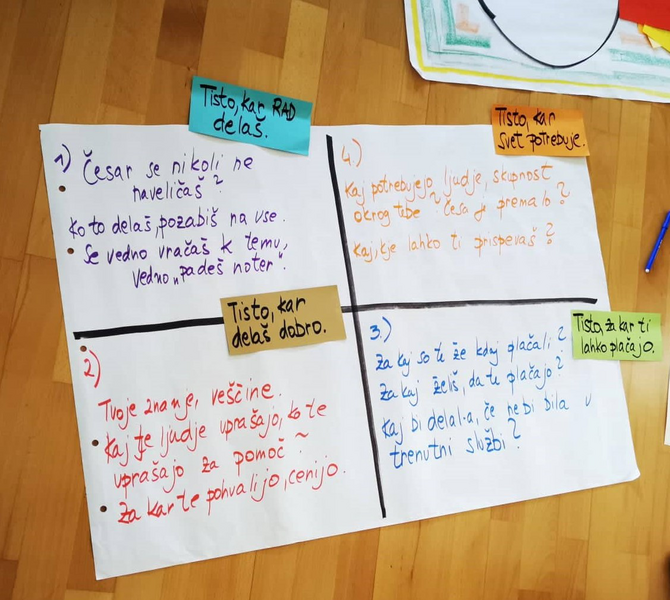 Tisto, kar RAD
delaš.
1) Česar se nikoli ne
naveličaš?
Ko to delaš, pozabiš na vse.
Se vedno vračaš k temu,
vedno „padeš noter".
Tisto, kar
delaš dobro.
2)
Tvoje znanje, veščine.
Kaj te ljudje uprašajo, ko te
uprašajo za pomoč?
Za kar te pohvalijo, cenijo.
Tisto, za kar ti
lahko plačajo.
3.)
Za kaj so te že kdaj plačali?
Za kaj želiš, da te plačajo?
Kaj bi delal-a, če nebi bila v
trenutni službi?
Tisto, kar
svet potrebuje.
4.)
Kaj potrebujejo ljudje, skupnost
okrog tebe? Česa je premalo?
Kaj, kje lahko ti prispevaš?